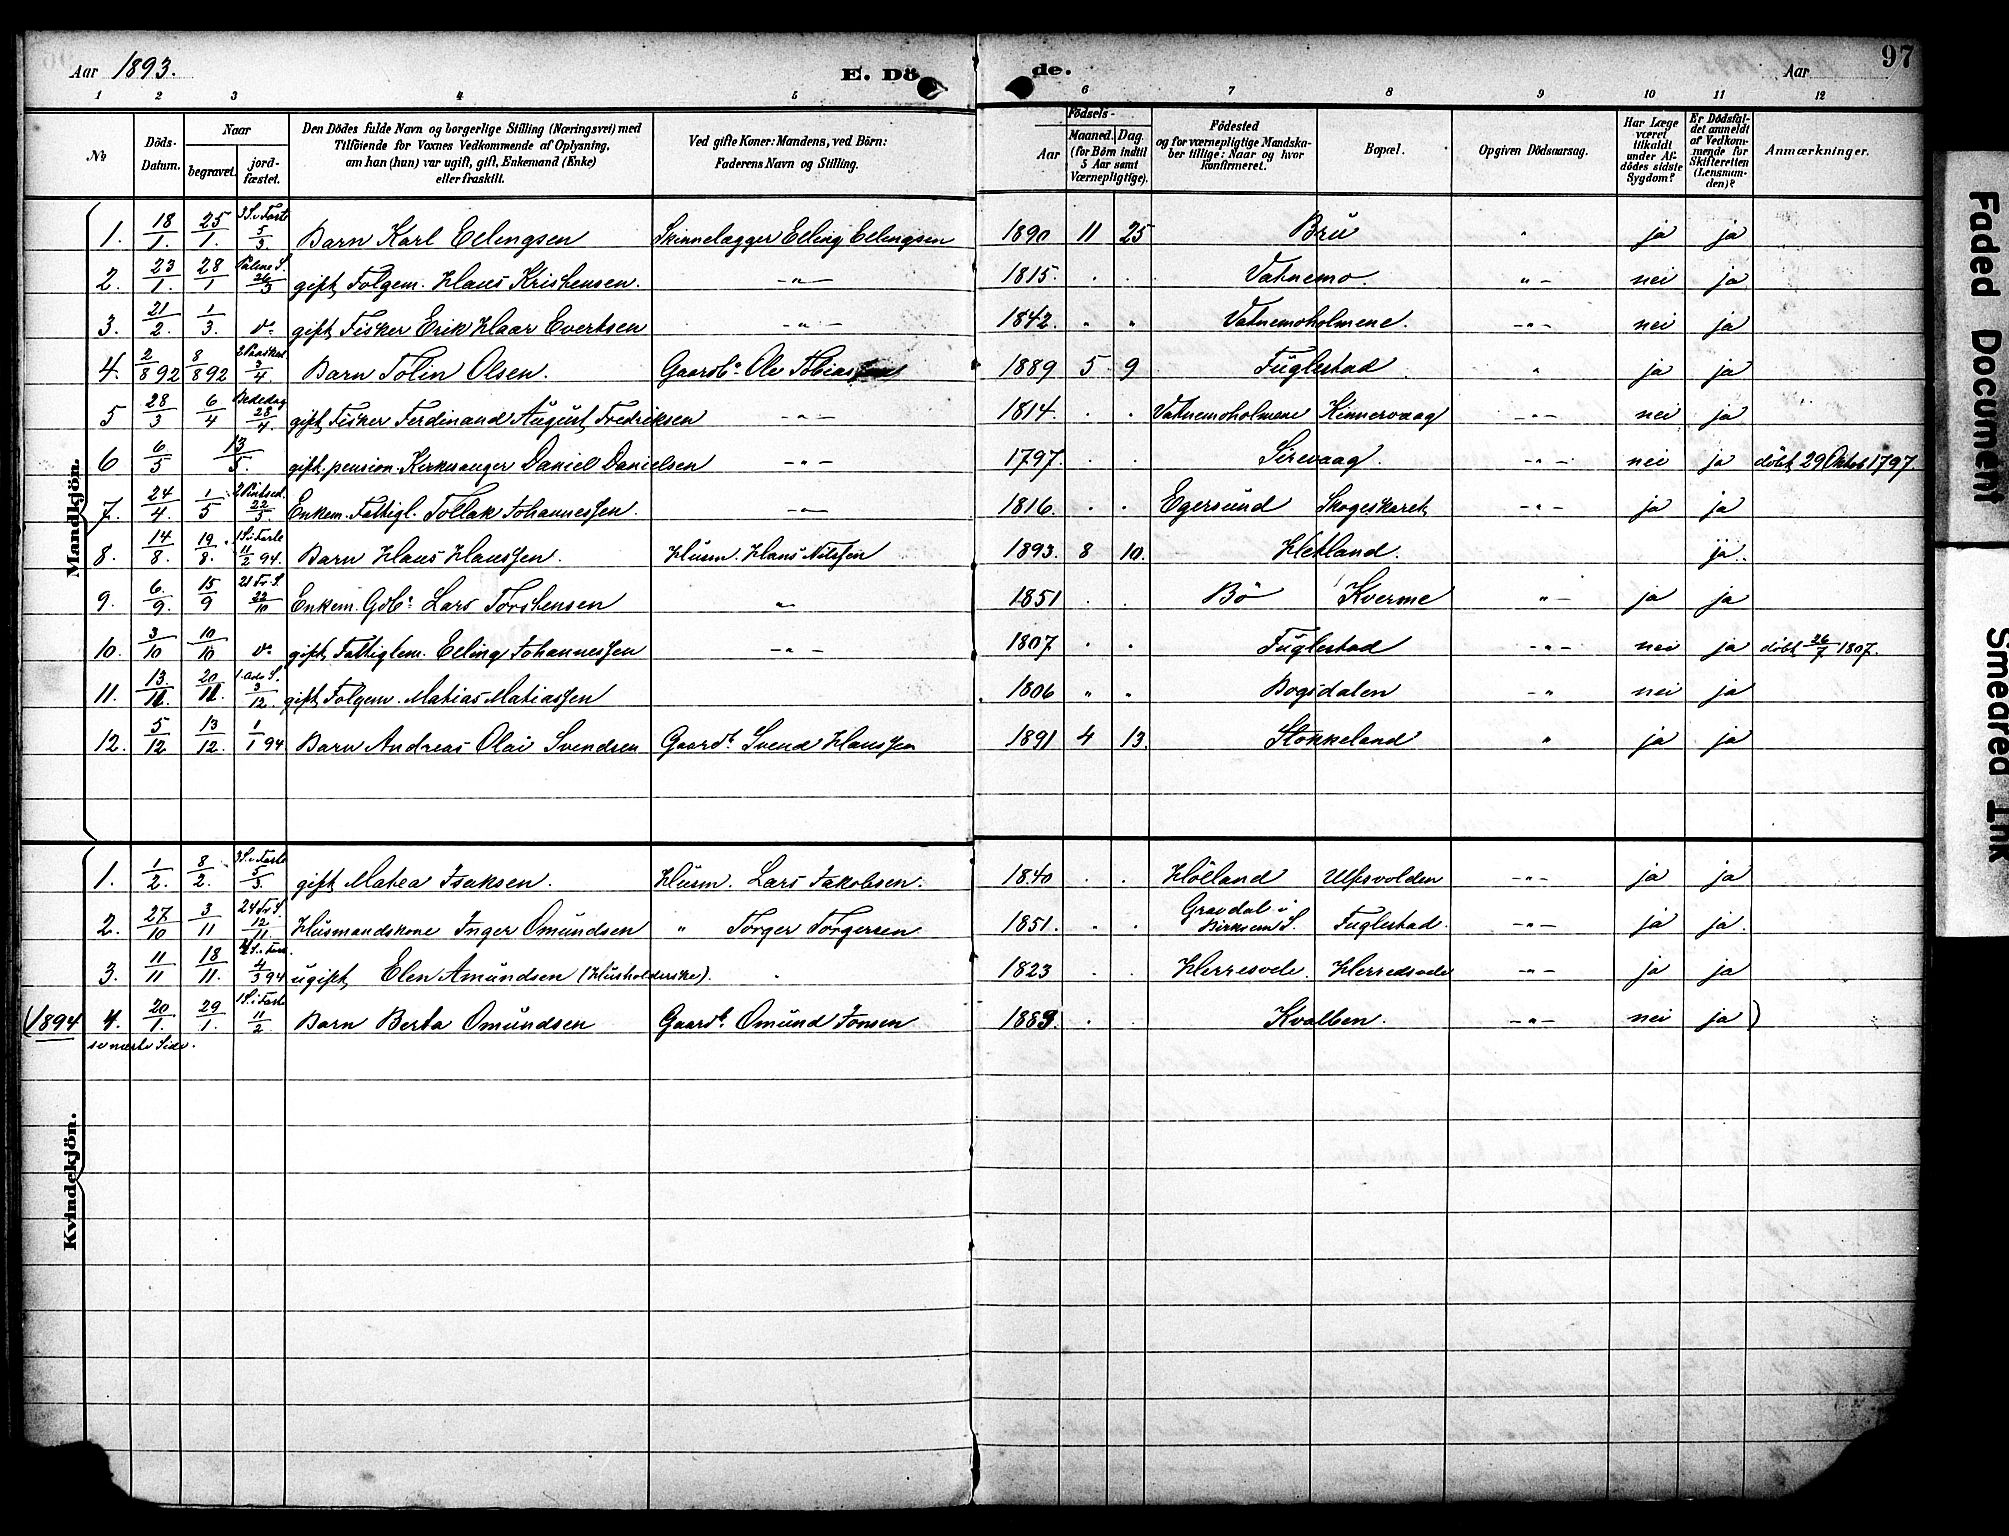 Aar 1893. E. Dö de. Aar 97
1 2 3 4 5 6 7 8 9 10 11 12
No Döds-Datum. Naar begravet. jord-fæstet. Den Dödes fulde Navn og borgerlige Stilling (Næringsvei) med Tilföiende for Voxnes Vedkommende af Oplysning, om han (hun) var ugift, gift, Enkemand (Enke) eller fraskilt. Ved gifte Koner: Mandens, ved Börn: Faderens Navn og Stilling. Födsels- Aar Maaned. Dag. (for Börn indtil 5 Aar samt Værnepligtige). Födested og for værnepligtige Mandskaber tillige: Naar og hvor konfirmeret. Bopæl. Opgiven Dödsaarsag. Har Læge været tilkaldt under Afdödes sidste Sygdom? Er Dödsfaldet anmeldt af Vedkommende for Skifteretten (Lensmanden)? Anmærkninger.
Mandkjön.
1. 18/1. 25/1. 3 S. i Faste 5/3. Barn Karl Ellingsen Skinnelægger Elling Ellingsen 1890 11 25 Brú " ja ja
2. 23/1. 28/1 Palme S. 26/3 gift, Folgem. Hans Kristensen. -"- 1815. . . Vatnemo. "- nei ja
3. 21/2. 1/3. do gift, Fisker Erik Klaar Evertsen -"- 1842. " " Vatnemoholmene. -"- nei ja
4. 2/8 92 8/8 92 2 Paaskед. 3/4. Barn Tolin Olsen. Gaardb. Ole Tobiassen 1889 5 9 Fuglestad " ja ja
5 28/3 6/4 Bededag 28/4. gift, Fisker Ferdinand August Fredriksen -"- 1814. . . Vatnemoholmene Kinnervaag -"- nei ja
6 6/5 13/5. gift. pension. Kirkesanger Daniel Danielsen -"- 1797. . . Sirevaag. -"- nei ja döbt 29 Oktob 1797.
7. 24/4. 1/5 2 Pintsed. 22/5. Enkem. Fattigl. Tollak Johannessen. -"- 1816. . . Egersund Skogeskaret -"- ja ja
8. 14/8. 19/8. 1 S. i Faste 11/2 94. Barn Hans Hanssen. Husm. Hans Nilssen 1893. 8 10. Hetland. ja.
9. 6/9. 15/9 21 Tr. S. 22/10 Enkem. Gdb. Lars Torstensen " 1851 . . Bö Kverme "- ja ja
10. 3/10 10/10 do gift, Fattiglem. Elling Johannessen -"- 1807 . . Fuglestad -"- nei ja döbt 26/7 1807.
11. 13/11. 20/11. 1 Adv. S. 3/12. gift, Folgem. Matias Matiassen 1806 " " Bogsdalen -" nei ja
12. 5/12 13/12. 1/1 94 Barn Andreas Olai Svendsen Gaardb. Svend Hanssen 1891 4 13. Stokkeland " ja ja
Kvindekjön.
1. 1/2. 8/2. 3 S. i Faste 5/3. gift Matea Isaksen. Husm. Lars Jakobsen. 1840 . . Hölland Ulfsvolden -"- ja ja
2. 27/10 3/11 24 Tr. S. 12/11. Husmandskone Inger Omundsen " Torger Torgersen 1851. . . Gravdal i Birkrem S. Fuglestad. -"- ja ja.
3. 11/11 18/11. 4 S. i Faste 4/3 94 ugift, Elen Amundsen (Husholderske). . 1823 . . Herresvele. Herredsvele -"- ja ja
(1894 4. 20/1. 29/1. 1 S. i Faste 11/2 Barn Berta Omundsen Gaardb. Omund Jonsen 1889. . . Kvalben. -"- nei ja )
se næste Side.
Faded Document
Smeared Ink